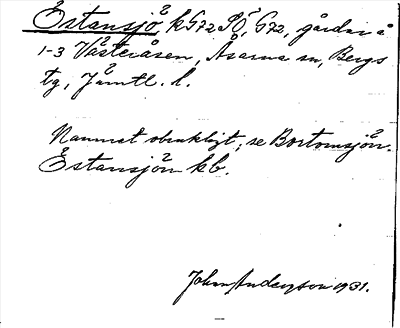 Östansjö, k G72 SÖ, G72, gårdar å
1-3 Västeråsen, Åsarne sn, Bergs
tg, Jämtl. l.
Namnet obrukligt, se Bortomsjön.
Östansjön kb.
Johan Anderson 1931.